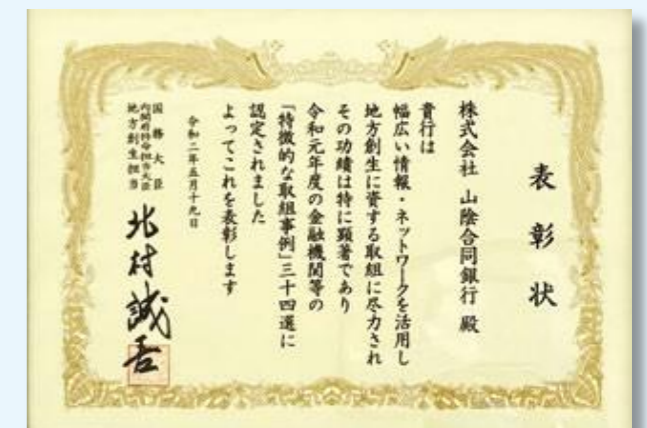 表彰状
株式会社 山陰合同銀行 殿
貴行は
幅広い情報・ネットワークを活用し
地方創生に資する取組に尽力され
その功績は特に顕著であり
令和元年度の金融機関等の
「特徴的な取組事例」三十四選に
認定されました
よってこれを表彰します
令和二年五月十九日
国務大臣
内閣府特命担当大臣
地方創生担当
北村誠吾